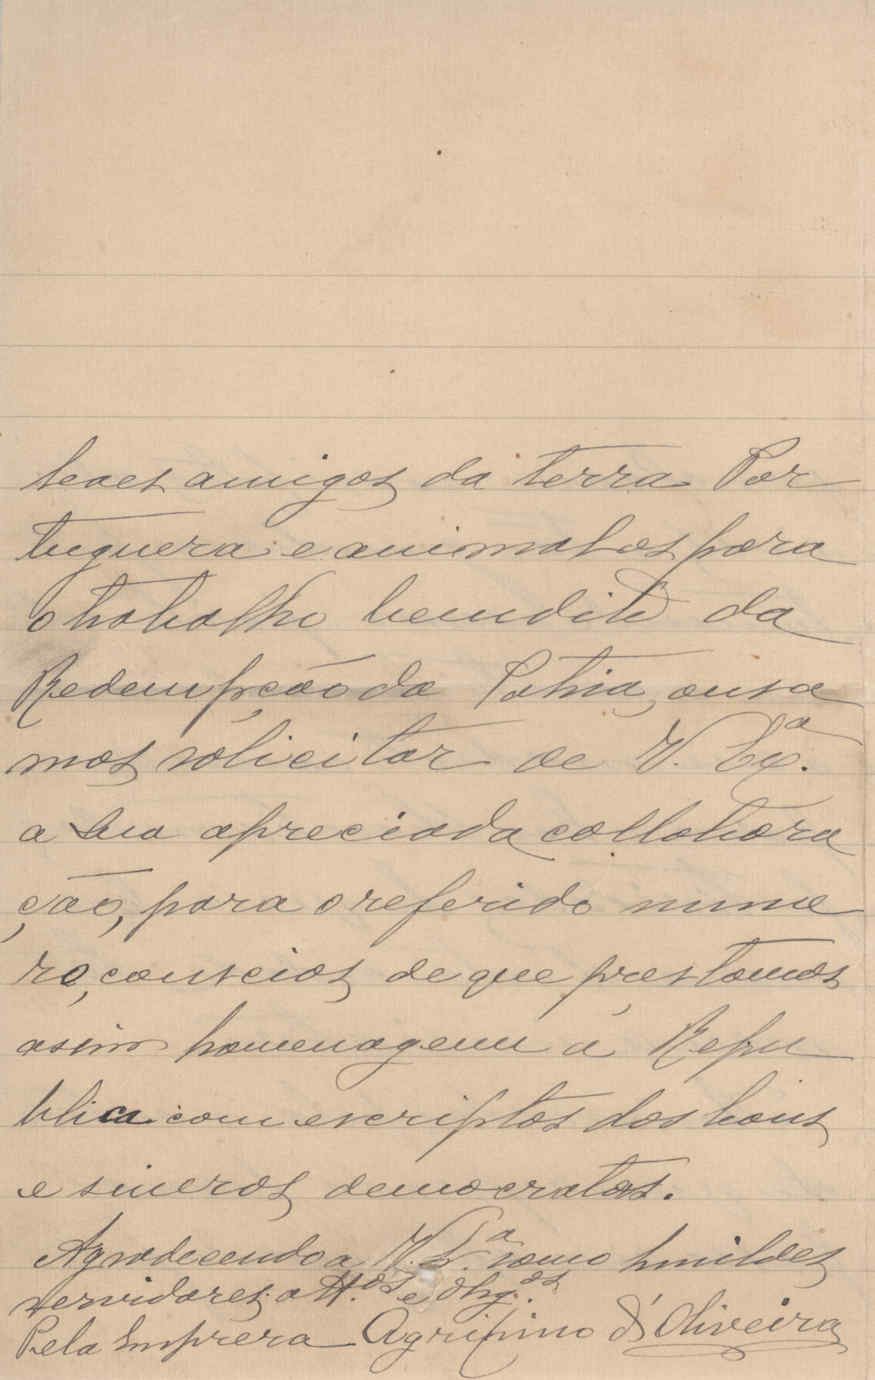 leaes amigos da terra Por
tugueza e animal-os para
o trabalho bemdito da
Redempção da Patria, ousa
mos solicitar de V. Exª.
a sua apreciada collabora
ção, para o referido nume
ro, conscios de que prestamos
asim homenagem á Repu
blica com escriptos dos bons
e sinceros democratas.
Agradecendo a V. Sª somos humildes
servidores attos. e obrgos.
Pela Empreza Agripino d'Oliveira